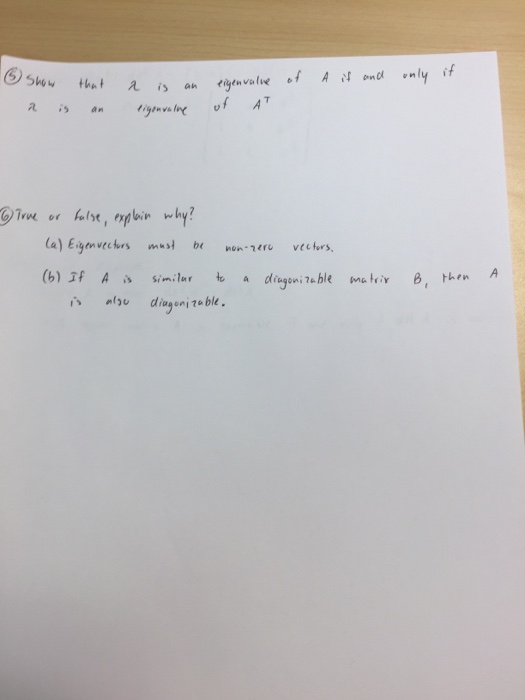 ⑤ Show that λ is an eigenvalue of A if and only if
λ is an eigenvalue of Aᵀ
⑥ True or False, explain why?
(a) Eigenvectors must be non-zero vectors.
(b) If A is similar to a diagonizable matrix B, then A
is also diagonizable.